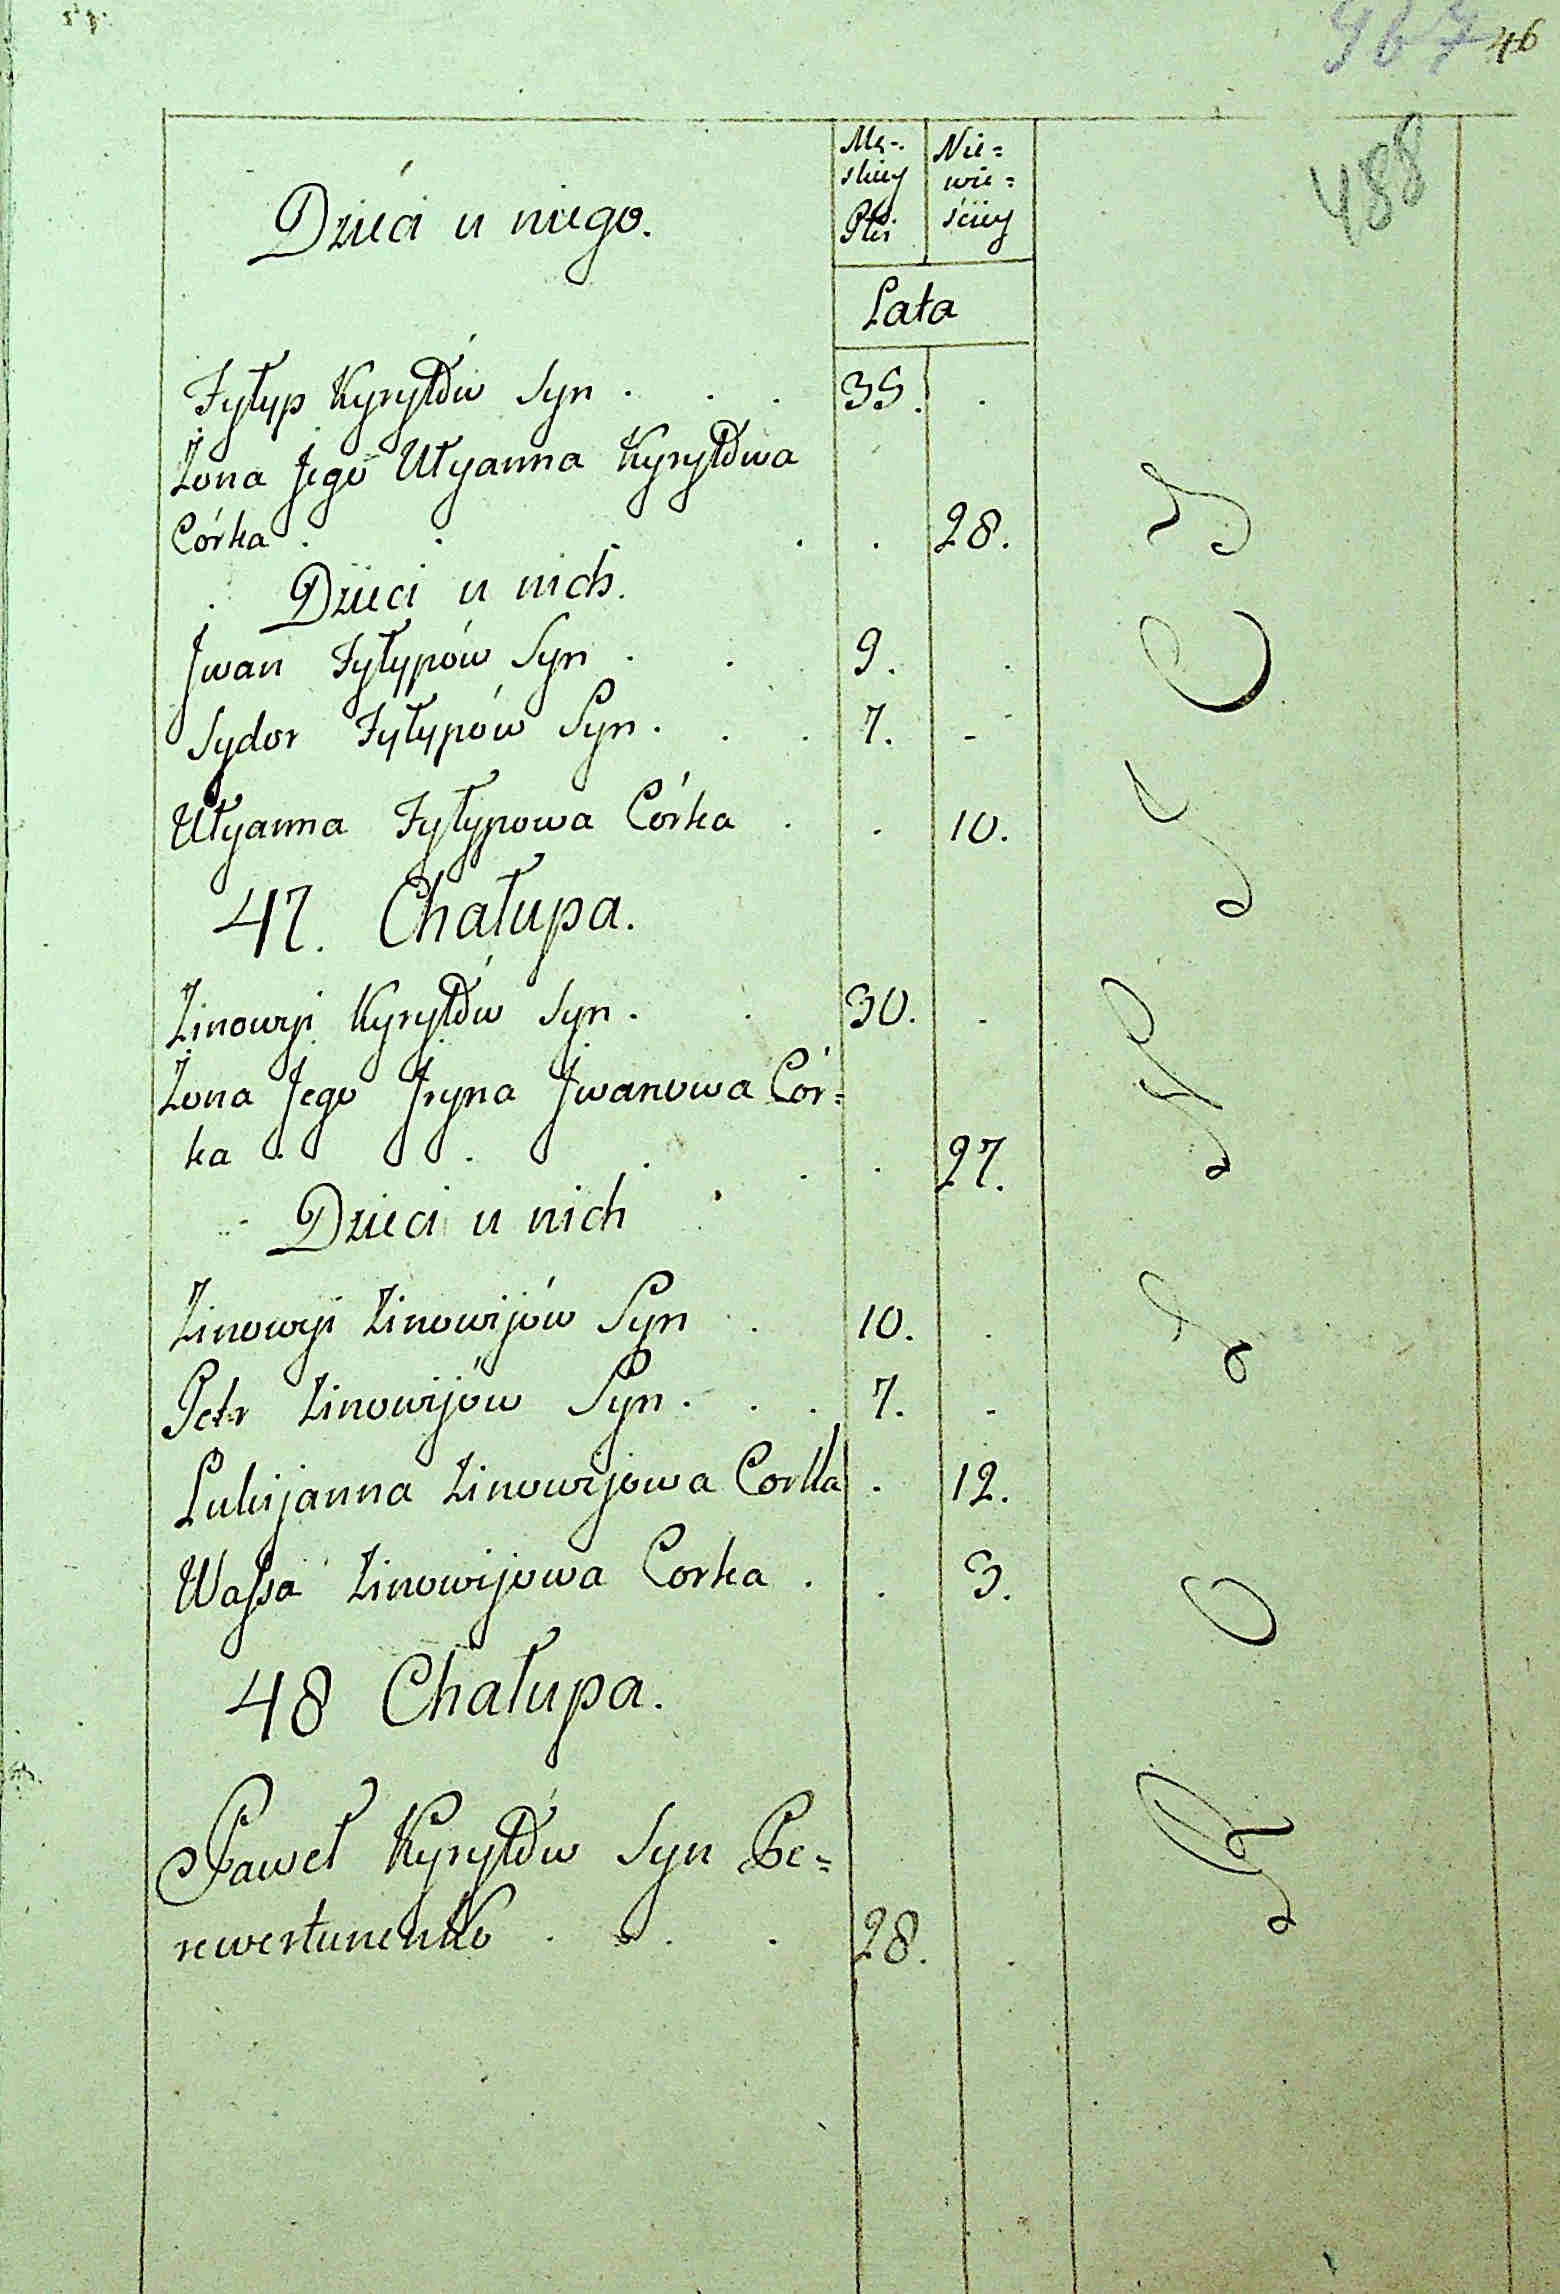 46
488
Dzieci u niego.
Mę-. Nie=
skiey wie=
Płci ściey
Lata
Fyłyp Kyryłów Syn . . . 35. .
Żona Jego Ułyanna Kyryłówa
Córka . . . . 28.
Dzieci u nich.
Jwan Fyłypów Syn . . 9. .
Sydor Fyłypów Syn . . . 7. -
Ułyanna Fyłypowa Córka . . 10.
47. Chałupa.
Zinowij Kyryłów Syn . . 30. -
Żona Jego Jryna Jwanowa Cór=
ka . . . . . 27.
Dzieci u nich
Zinowij Zinowijów Syn . 10. .
Petr Zinowijów Syn . . . 7. -
Lukijanna Zinowijowa Corka . 12.
Wassa Zinowijowa Corka . . 3.
48 Chałupa.
Paweł Kyryłów Syn Pe=
rewertunenko . . . 28. .